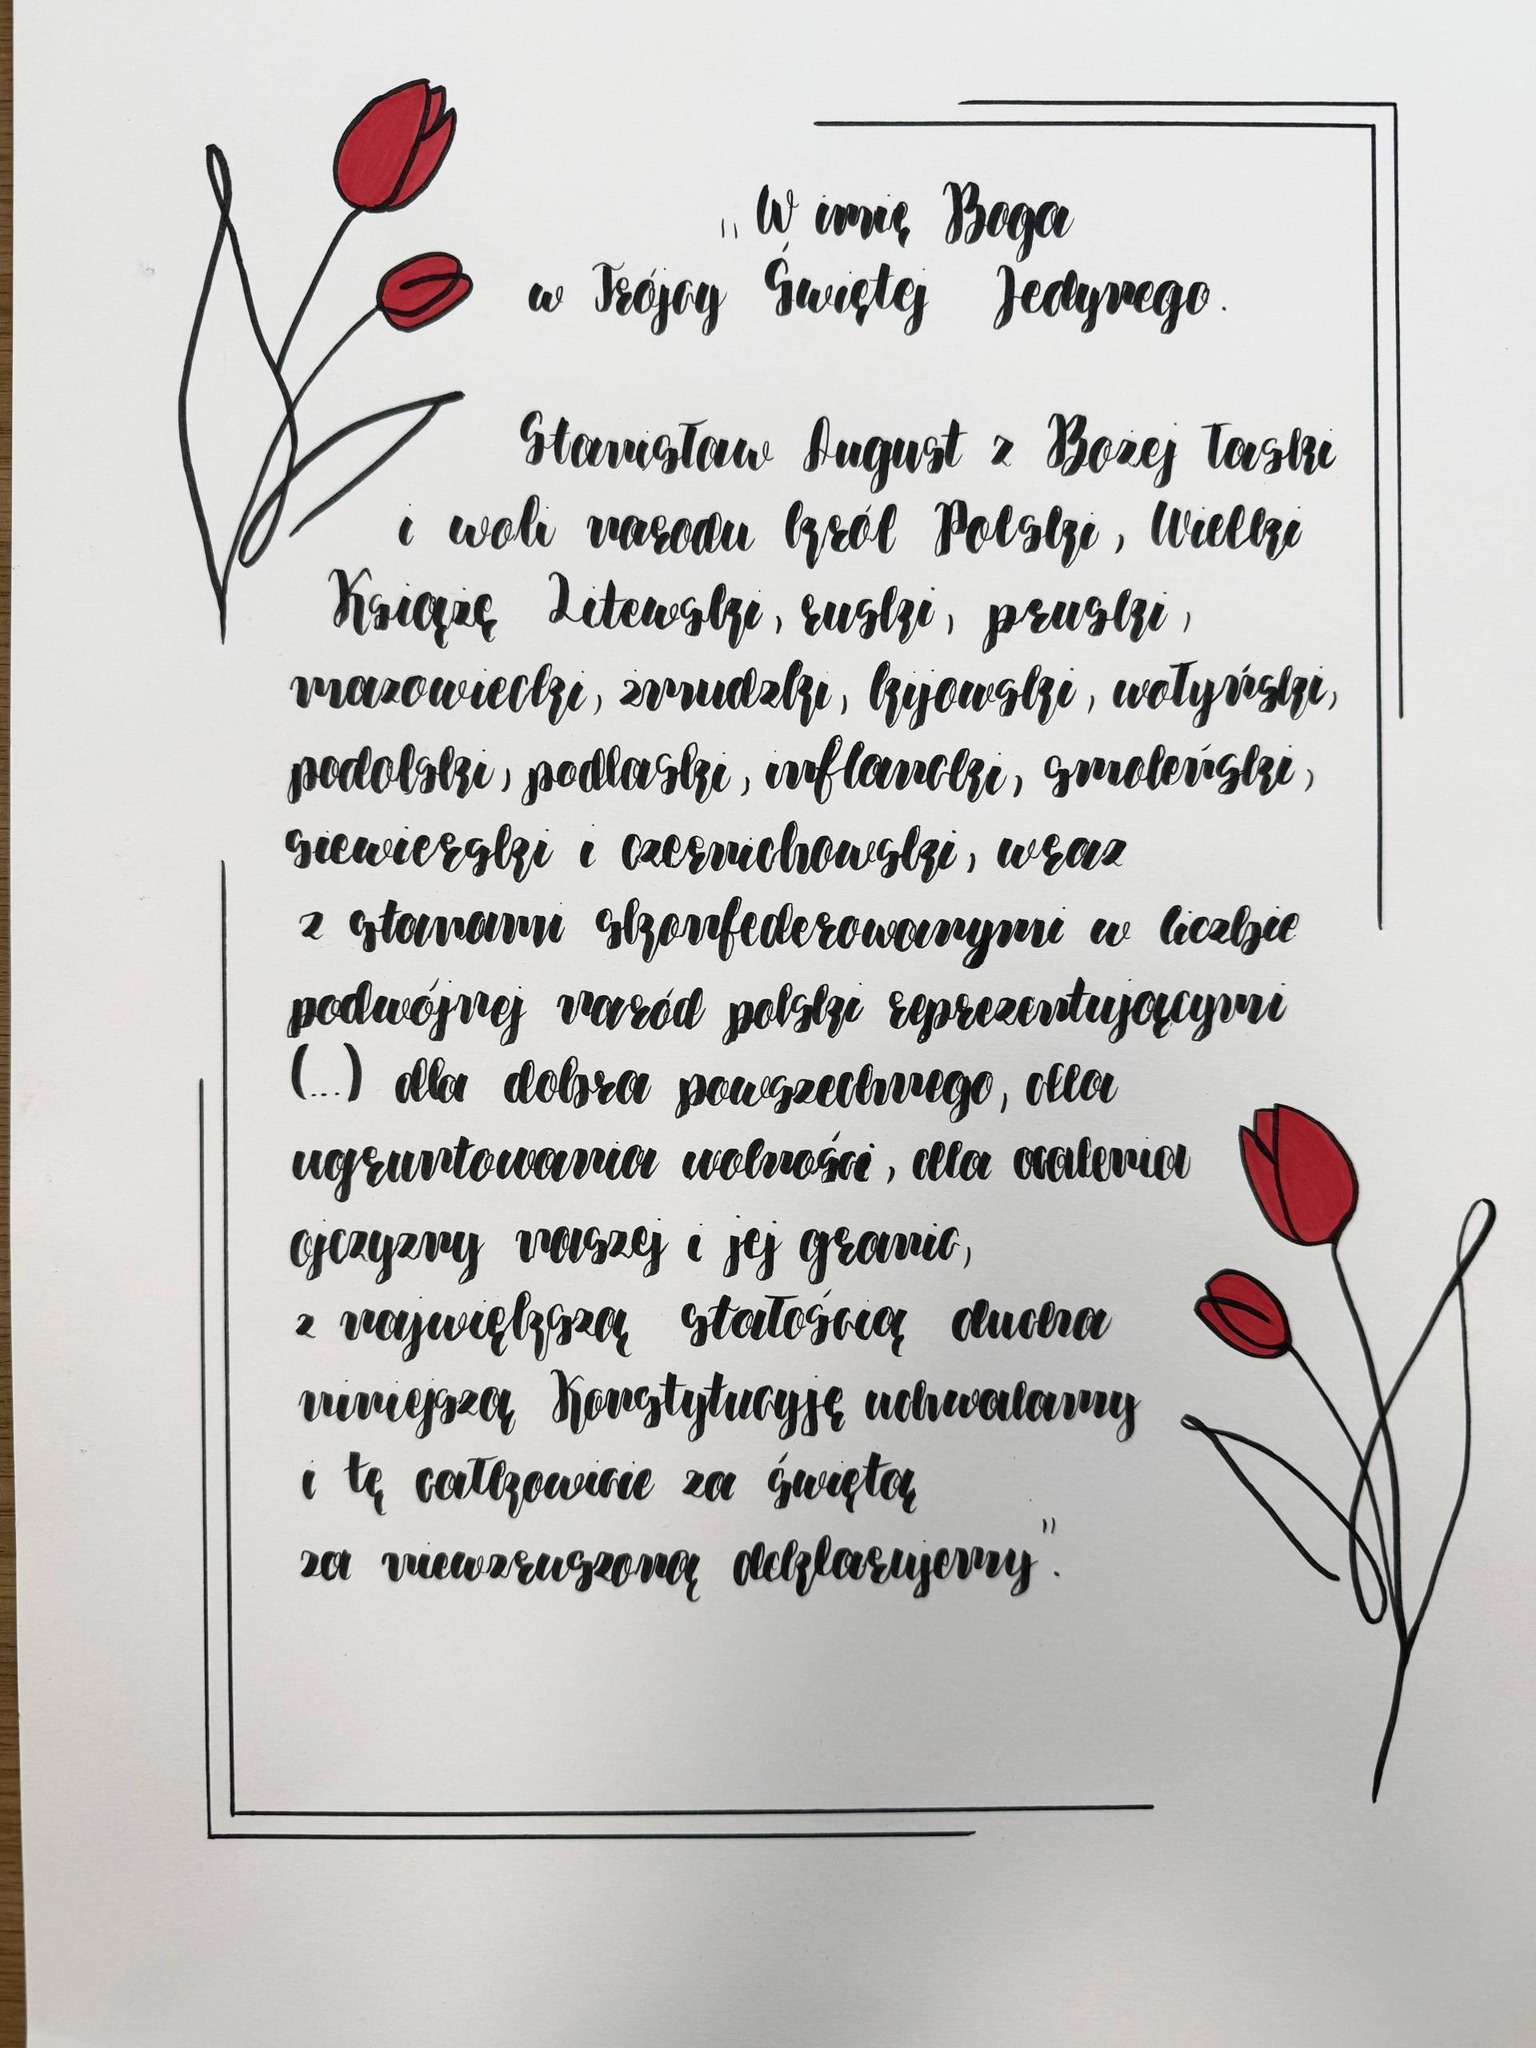 „W imię Boga
w Trójcy Świętej Jedynego.
Stanisław August z Bożej łaski
i woli narodu król Polski, Wielki
Książę Litewski, ruski, pruski,
mazowiecki, żmudzki, kijowski, wołyński,
podolski, podlaski, inflancki, smoleński,
siewierski i czernichowski, wraz
z stanami skonfederowanymi w liczbie
podwójnej naród polski reprezentującymi
(...) dla dobra powszechnego, dla
ugruntowania wolności, dla ocalenia
ojczyzny naszej i jej granic,
z największą stałością ducha
niniejszą Konstytucyję uchwalamy
i tę całkowicie za świętą
za niewzruszoną deklarujemy”.